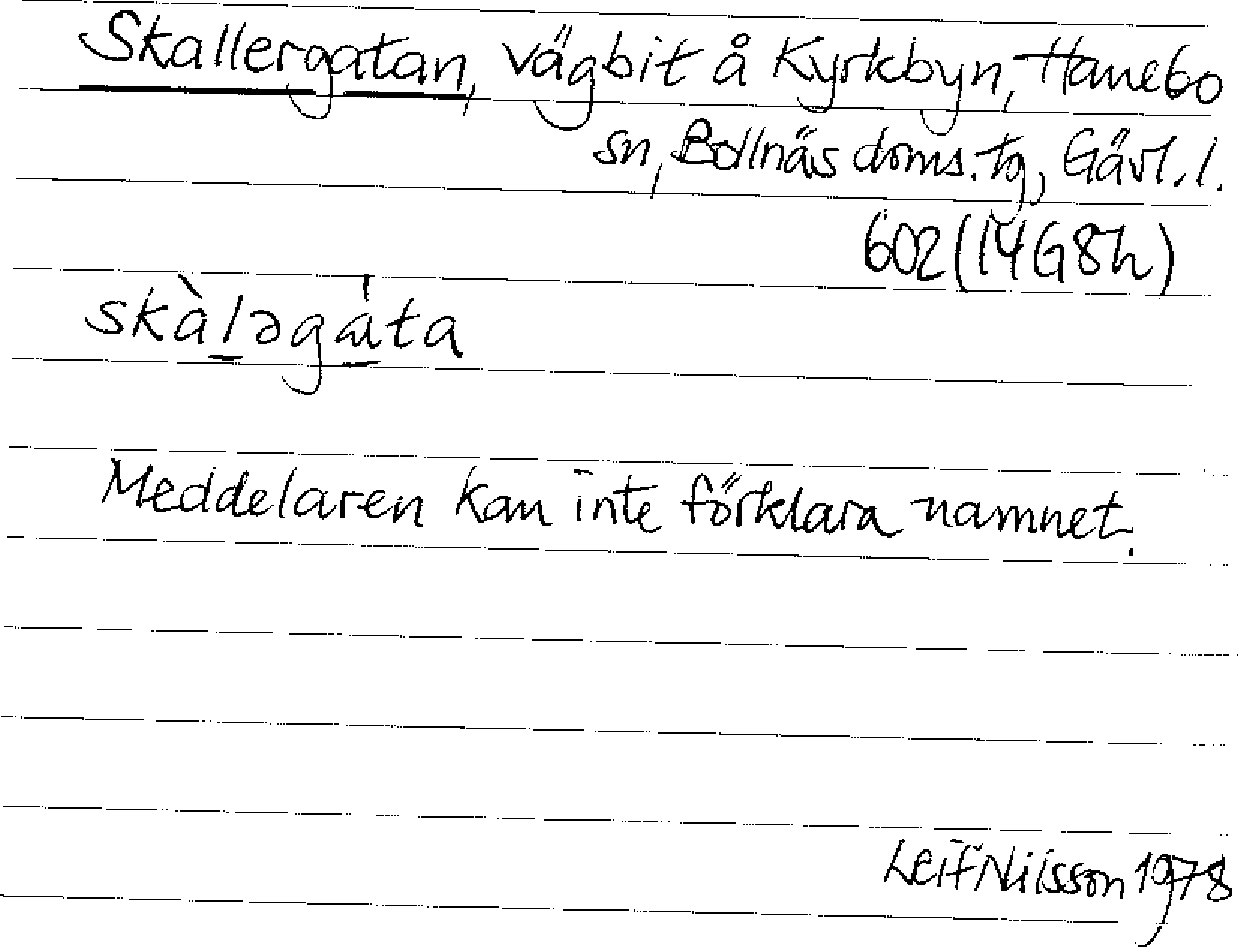 Skallergatan, vägbit å Kyrkbyn, Hanebo
sn, Bollnäs doms.tg, Gävl.l.
602 (14G8h)
skàləgáta
Meddelaren kan inte förklara namnet.
Leif Nilsson 1978